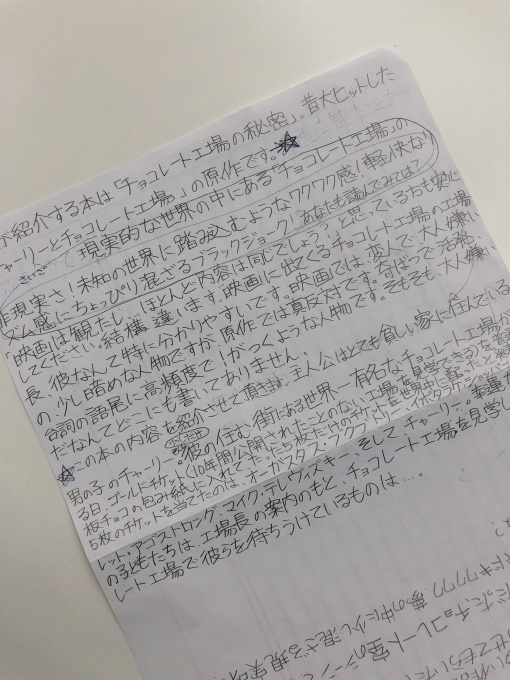 が紹介する本は「チョコレート工場の秘密」。昔大ヒットした
ャーリーとチョコレート工場」の原作です。☆
現実的な世界の中にある「チョコレート工場」の
非現実さ!未知の世界に踏み込むようなワクワク感!軽快な
ズム感にちょっぴり混ざるブラックジョーク!あなたも読んでみては?
さいご
「映画は観たし、ほとんど内容は同じでしょう?」と思っている方も
してください。結構違います。映画に出てくるチョコレート工場の工場
長、彼なんて特に分かりやすいです。映画では、変人で、大人嫌い
の、少し暗めな人物ですが、原作では真反対です。
台詞の語尾に高頻度で!がつくような人物です。そもそも、大人嫌い
だなんてどこにも書いてありません。
☆この本の内容を紹介させて頂きます。主人公はとても貧しい家に住んでいる
男の子のチャーリー。彼の住む街にある世界一有名なチョコレート工場が
る日、ゴールドチケット(10年間公開されたことのない工場を見学できる)を
板チョコの包み紙に入れて、たった5枚だけのチケットを世界中に
5枚のチケットを当てたのは、オーガスタス・グループ
レット・アゴストロング、マイク・テレヴィスキー、そしてチャーリー。
の子どもたちは、工場長の案内のもと、チョコレート工場を見学し
レート工場で彼らを待ちうけているものは…。